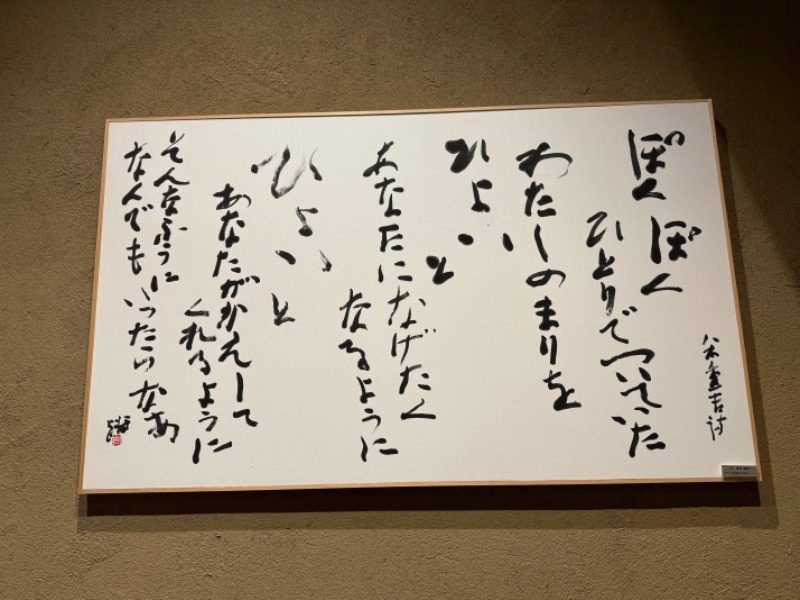 八木重吉詩
ぽくぽく
ひとりでついていた
わたしのまりを
ひょいと
あなたになげたく
なるように
ひょいと
あなたがかえして
くれるように
そんなふうに
なんでもいったらなあ